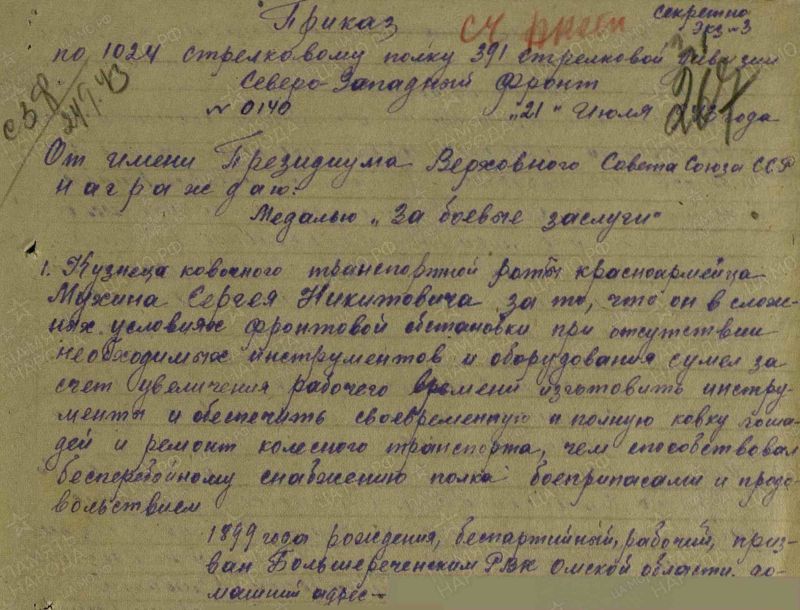 Приказ
Секретно
Экз №3
по 1024 стрелковому полку 391 стрелковой дивизии
Северо-Западный фронт
№ 0140 „21“ Июля 43 года
сзф
24.9.43
207
От имени Президиума Верховного Совета Союза ССР
награждаю:
Медалью „За боевые заслуги“
1. Кузнеца ковочного транспортной роты красноармейца
Мухина Сергея Никитовича за то, что он в слож-
ных условиях фронтовой обстановки при отсутствии
необходимых инструментов и оборудования сумел за
счет увеличения рабочего времени изготовить инстру-
менты и обеспечить своевременную и полную ковку лоша-
дей и ремонт колесного транспорта, чем способствовал
бесперебойному снабжению полка боеприпасами и продо-
вольствием
1899 года рождения, беспартийный, рабочий, приз-
ван Большереченским РВК Омской области. до-
машний адрес-